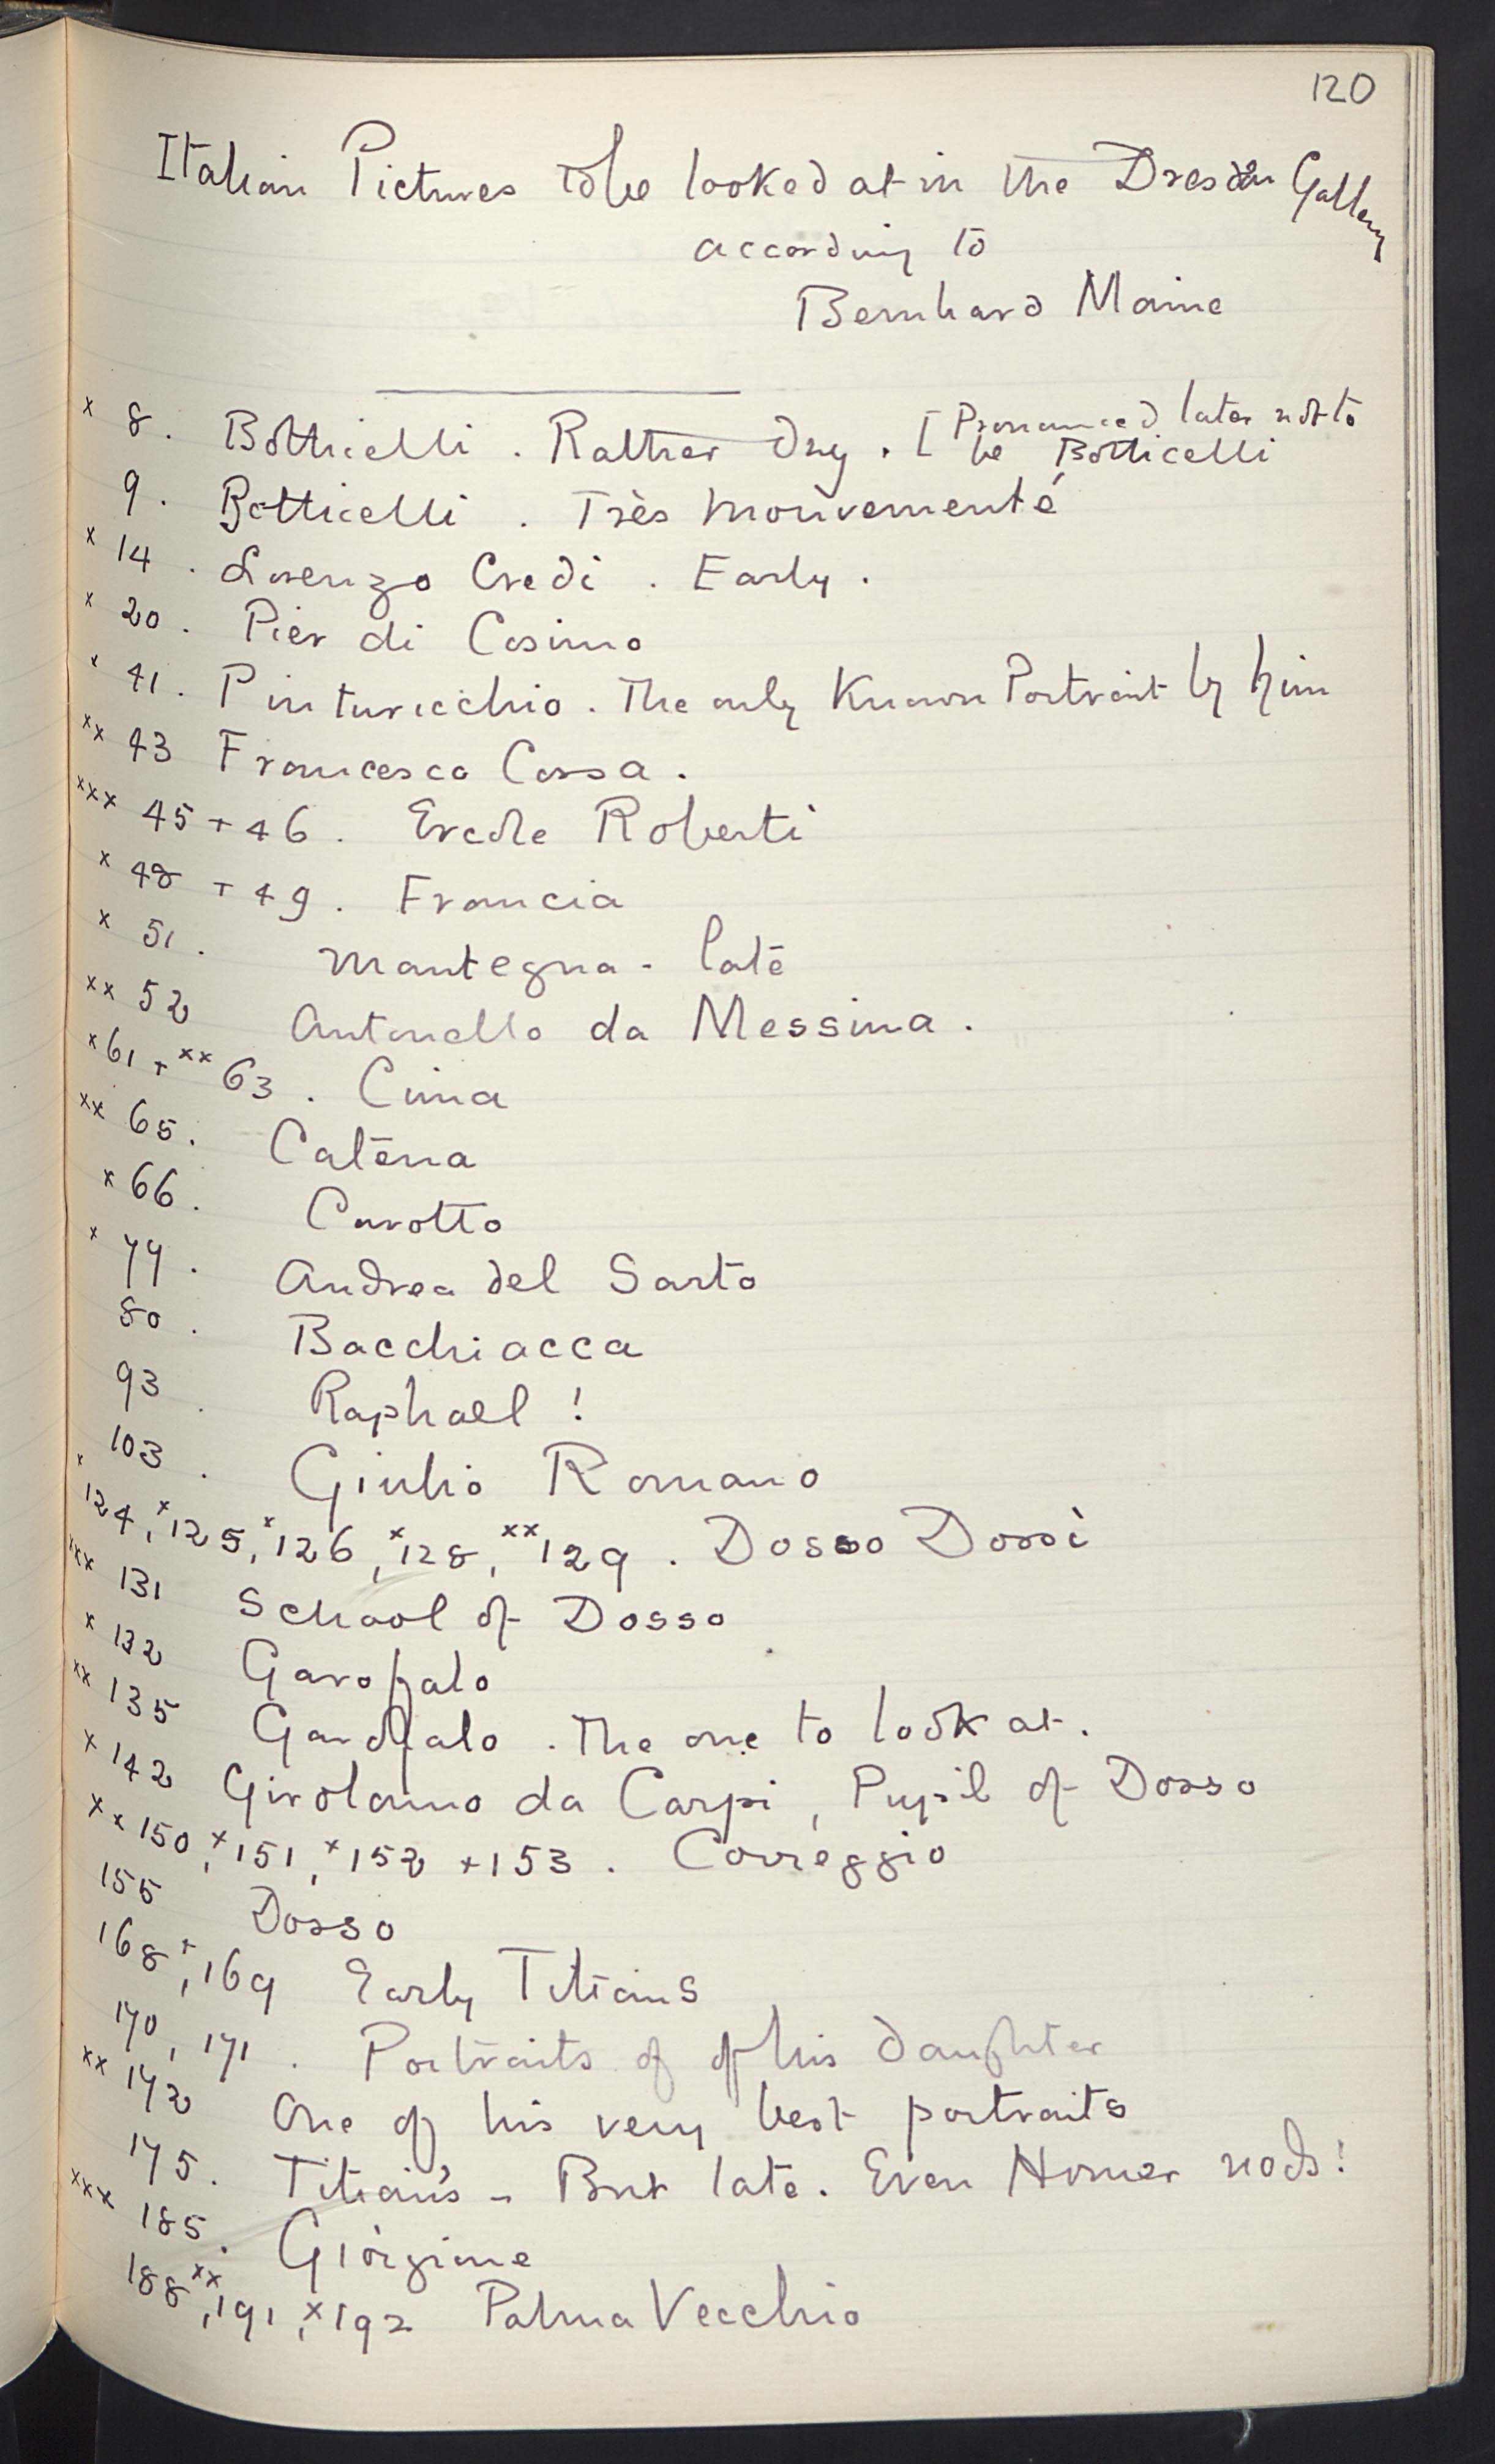 120
Italian Pictures to be looked at in the Dresden Gallery
according to
Bernhard Maine
x 8. Botticelli. Rather dry. [Pronounced later not to
be Botticelli
9. Botticelli. Très mouvementé
x 14. Lorenzo Credi. Early.
x 20. Pier di Cosimo
x 41. Pinturicchio. The only known Portrait by him
xx 43 Francesco Cossa.
xxx 45 + 46. Ercole Roberti
x 48 + 49. Francia
x 51. Mantegna - late
xx 52 Antonello da Messina.
x 61 + xx 63. Cima
xx 65. Catena
x 66. Carotto
x 77. Andrea del Sarto
80. Bacchiacca
93. Raphael!
103. Giulio Romano
x 124, x 125, x 126, x 128, xx 129. Dosso Dossi
xxx 131 School of Dosso
x 132 Garofalo
xx 135 Garofalo. The one to look at.
x 142 Girolamo da Carpi, Pupil of Dosso
xx 150, x 151, x 152 + 153. Correggio
155 Dosso
168, + 169 Early Titians
170, 171. Portraits of of his daughter
xx 172 One of his very best portraits
175. Titian's - But late. Even Homer nods!
xxx 185. Giorgione
188, xx 191, x 192 Palma Vecchio